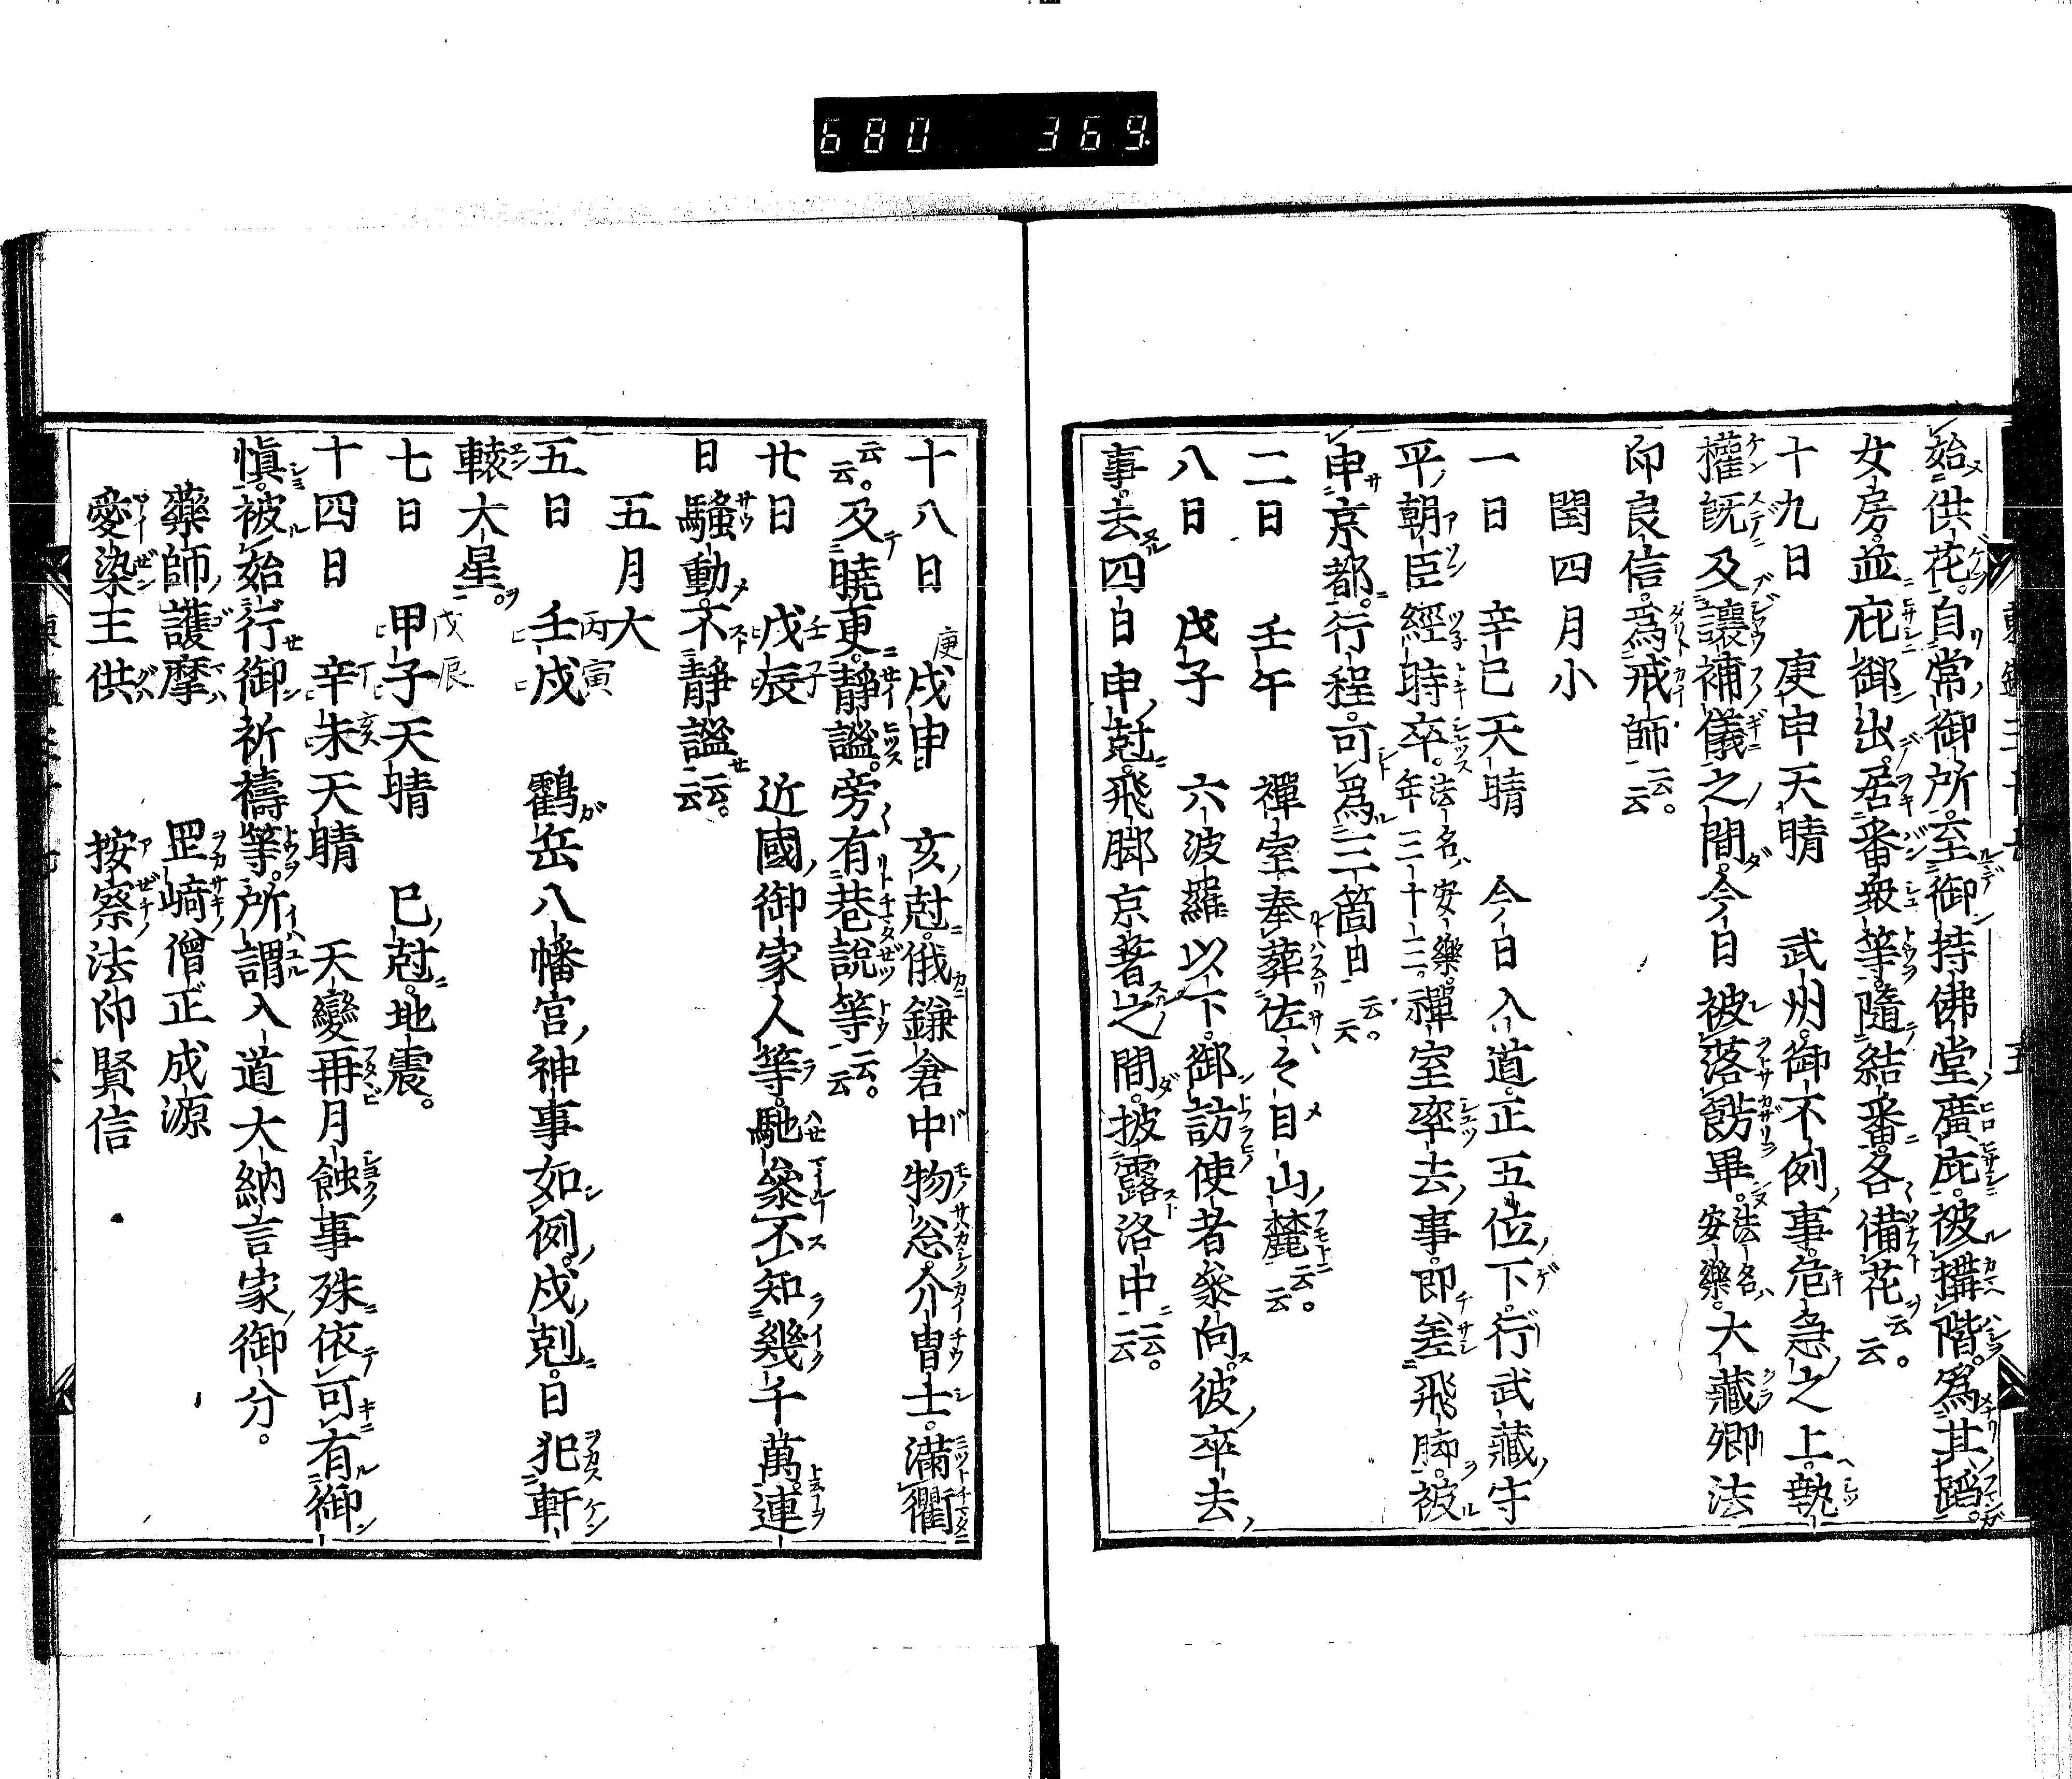 680 369.
始供花。自常御所。至御持佛堂廣庇。被搆階。爲其蹈。
女房。並庇御出。居番衆等。隨結番。各備花云云。
十九日 庚申天晴 武州。御不例事。危急之上。執
權旣及讓補儀之間。今日被落餝畢。法名安樂。大藏卿法
印良信。爲戒師云云。
閏四月小
一日 辛巳天晴 今日入道正五位下。行武藏守
平朝臣經時卒。法名安樂。年三十三。禪室卒去事。即差飛脚。被
申京都。行程。可爲三箇日云云。
二日 壬午 禪室奉葬佐々目山麓云云。
八日 戊子 六波羅以下。御訪使者參向。彼卒去
事。去四日申尅。飛脚京著之間。披露洛中云云。
十八日 戌申 亥尅。俄鎌倉中物忩。介曺士。滿衢
庚
云云。及曉更。靜謐。旁有巷說等云云。
廿日 戊辰 近國御家人等。馳參不知幾千萬。連
壬子
日騷動。不靜謐云云。
五月大
五日 壬戌 鶴岳八幡宮神事如例。戌剋。日犯軒
丙寅
轅大星。
七日 甲子天晴 巳尅。地震。
戊辰
十四日 辛未天晴 天變再月蝕事殊依可有御
丁亥
愼。被始行御祈禱等。所謂入道大納言家御分。
藥師護摩 岡﨑僧正成源
愛染王供 按察法印賢信